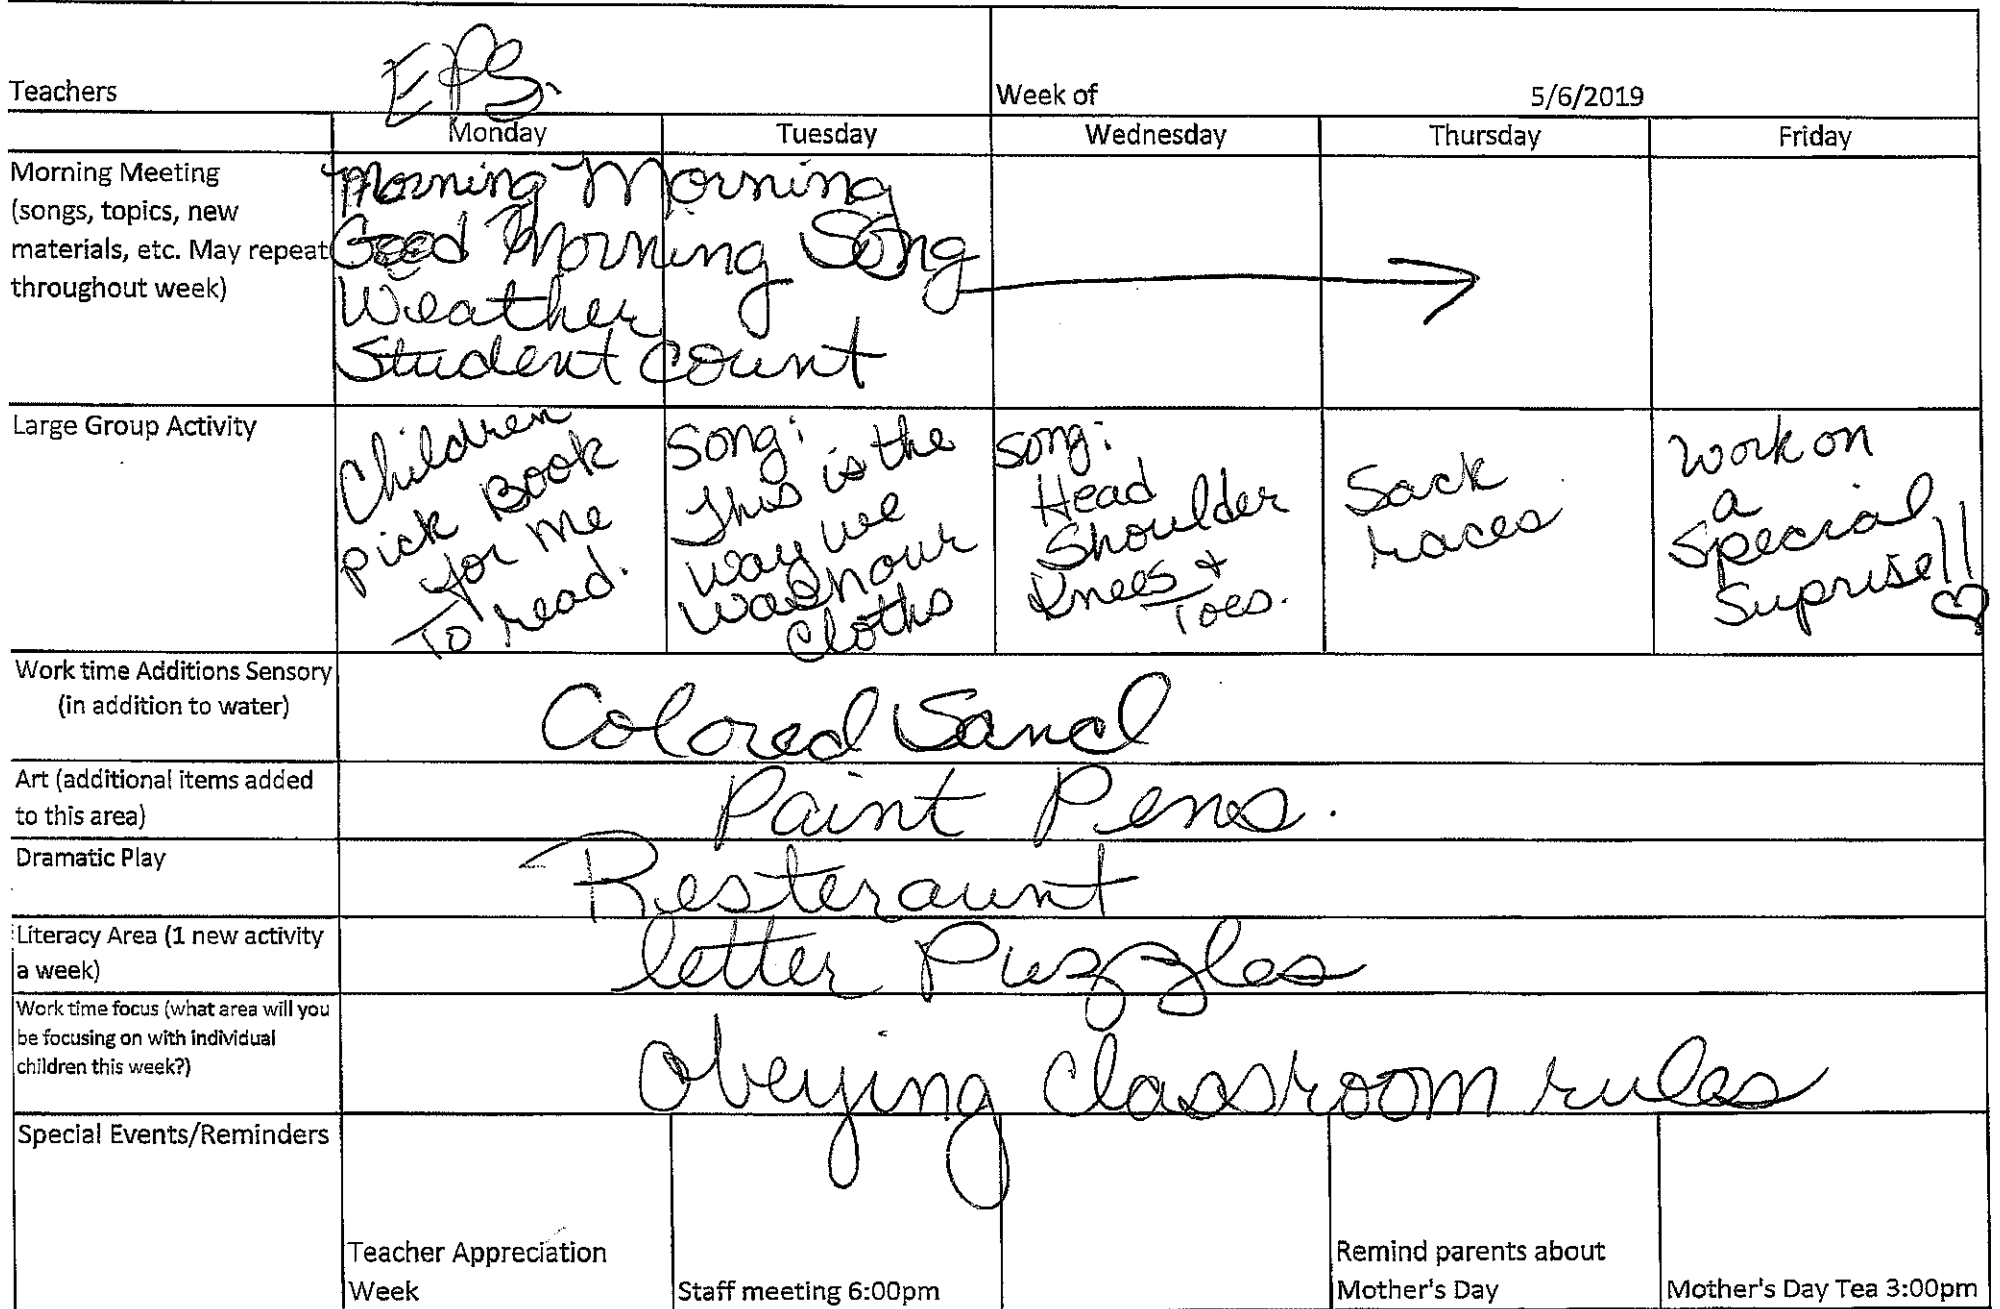 Teachers EPS. Week of 5/6/2019
Monday Tuesday Wednesday Thursday Friday
Morning Meeting
(songs, topics, new
materials, etc. May repeat
throughout week)
Morning Morning
Good Morning Song
Weather
Student Count
Large Group Activity
Children
pick Book
for me
To read.
Song:
This is the
way we
wash our
Cloths
Song:
Head
Shoulder
Knees +
Toes.
Sack
races
Work on
a
Special
Suprise!!
Work time Additions Sensory
(in addition to water)
Colored Sand
Art (additional items added
to this area)
Paint Pens.
Dramatic Play
Resteraunt
Literacy Area (1 new activity
a week)
letter Puzzles
Work time focus (what area will you
be focusing on with individual
children this week?)
Obeying Classroom rules
Special Events/Reminders
Teacher Appreciation
Week
Staff meeting 6:00pm
Remind parents about
Mother's Day
Mother's Day Tea 3:00pm